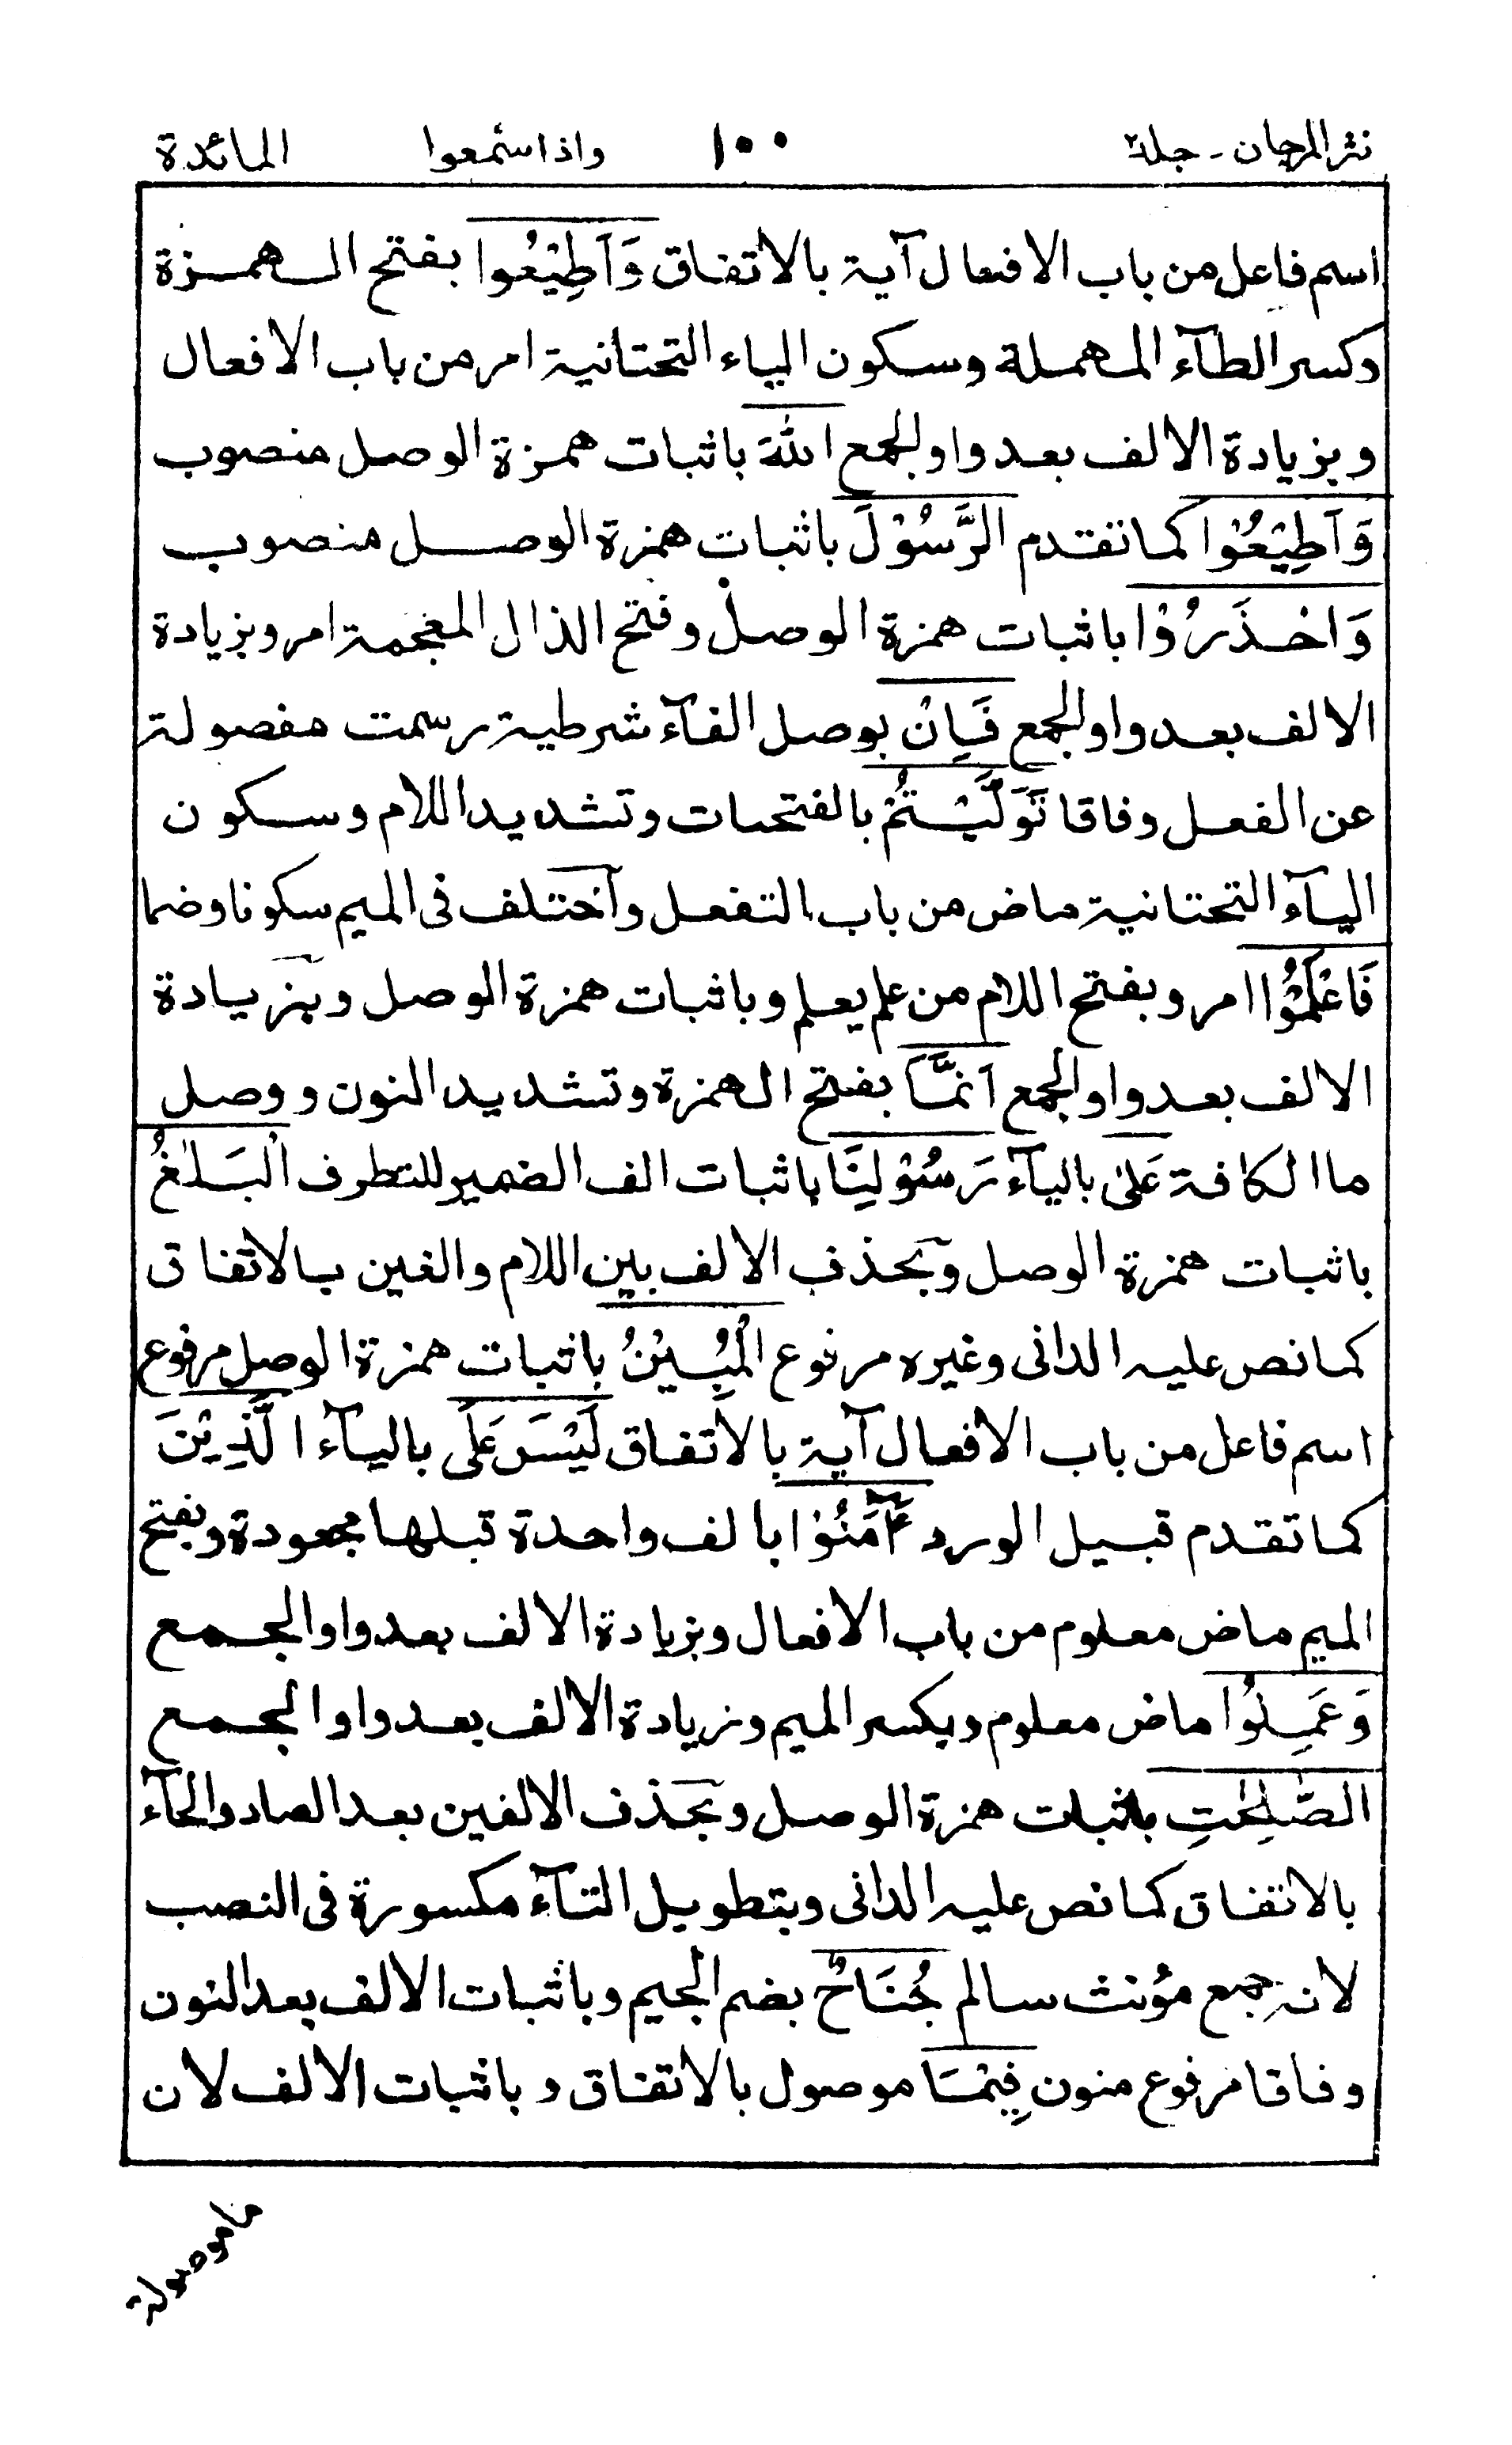 نثر المرجان - جلد٢ ١٠٠ واذا سمعوا المائدة
اسم فاعل من باب الافعال آية بالاتفاق وَاَطِيْعُوا بفتح الهمزة
وكسر الطآء المهملة وسكون الياء التحتانية امر من باب الافعال
وبزيادة الالف بعد واو الجمع اللهَ باثبات همزة الوصل منصوب
وَاَطِيْعُوْا كما تقدم الرَّسُوْلَ باثبات همزة الوصل منصوب
وَاحْذَرُوْا باثبات همزة الوصل وفتح الذال المعجمة امر وبزيادة
الالف بعد واو الجمع فَاِنْ بوصل الفآء شرطية رسمت مفصولة
عن الفعل وفاقا تَوَلَّيْتُمْ بالفتحات وتشديد اللام وسكون
اليآء التحتانية ماض من باب التفعل وآختلف فى الميم سكونا وضما
فَاعْلَمُوْا امر وبفتح اللام من علم يعلم وباثبات همزة الوصل وبزيادة
الالف بعد واو الجمع اَنَّمَا بفتح الهمزة وتشديد النون ووصل
ما الكافة عَلىٰ باليآء رَسُوْلِنَا باثبات الف الضمير للتطرف الْبَلٰغُ
باثبات همزة الوصل وبحذف الالف بين اللام والغين بالاتفاق
كما نص عليه الدانى وغيره مرفوع الْمُبِيْنُ باثبات همزة الوصل مرفوع
اسم فاعل من باب الافعال آية بالاتفاق لَيْسَ عَلَى باليآء الَّذِيْنَ
كما تقدم قبيل الورد ءٰامَنُوْا بالف واحدة قبلها مجعودة وبفتح
الميم ماض معلوم من باب الافعال وبزيادة الالف بعد واو الجمع
وَعَمِلُوا ماض معلوم وبكسر الميم وزيادة الالف بعد واو الجمع
الصّٰلِحٰتِ باثبات همزة الوصل وبحذف الالفين بعد الصاد والحآء
بالاتفاق كما نص عليه الدانى وبتطويل التآء مكسورة فى النصب
لانه جمع مؤنث سالم جُنَاحٌ بضم الجيم وباثبات الالف بعد النون
وفاقا مرفوع منون فِيْمَا موصول بالاتفاق وباثبات الالف لان
ما موصولة